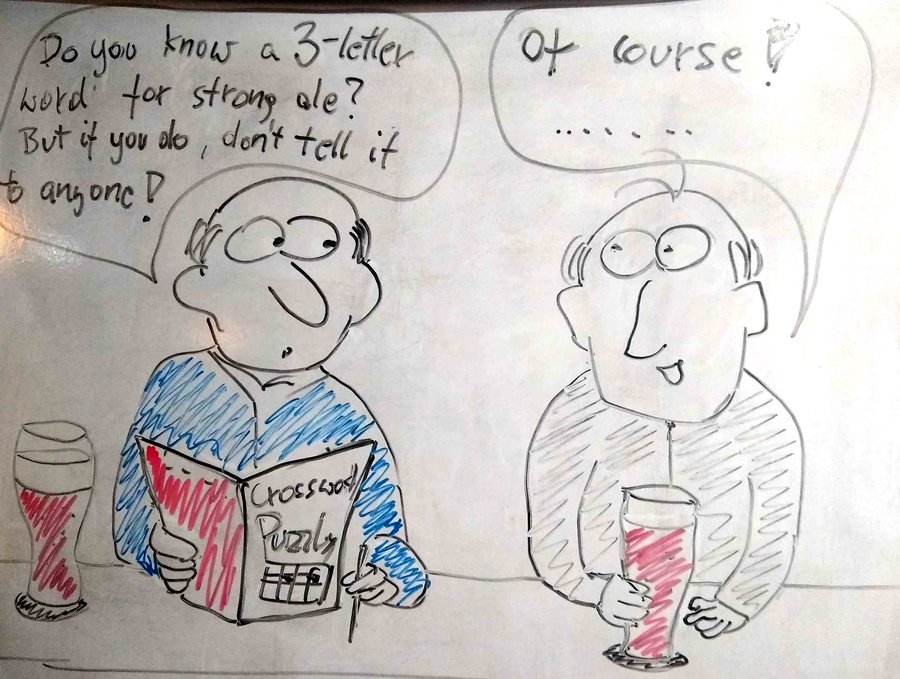 Do you know a 3-letter
word for strong ale?
But if you do, don't tell it
to anyone!
Of course!
.......
Crossword
Puzzle